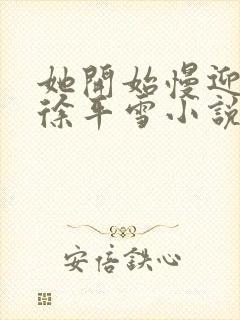 她開始慢迎
徐平雪小說
安倍鉄心